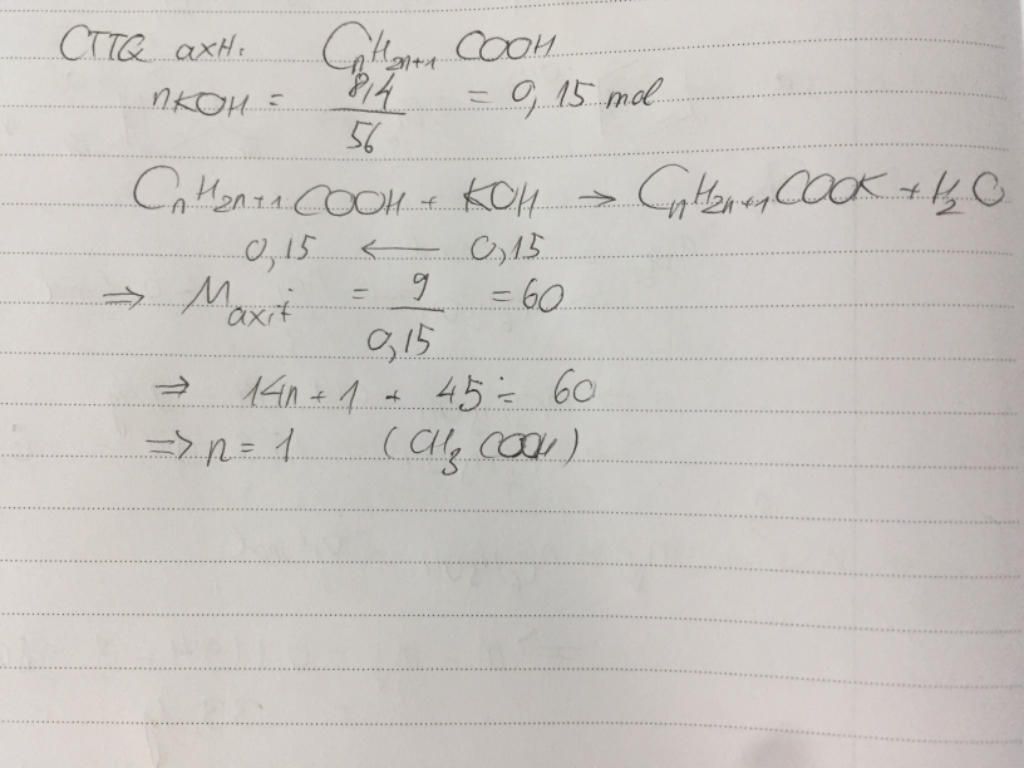 CTTQ axit: CnH2n+1COOH
nKOH = 8,4/56 = 0,15 mol
CnH2n+1COOH + KOH → CnH2n+1COOK + H2O
0,15 ← 0,15
⇒ Maxit = 9/0,15 = 60
⇒ 14n + 1 + 45 = 60
⇒ n = 1 (CH3COOH)